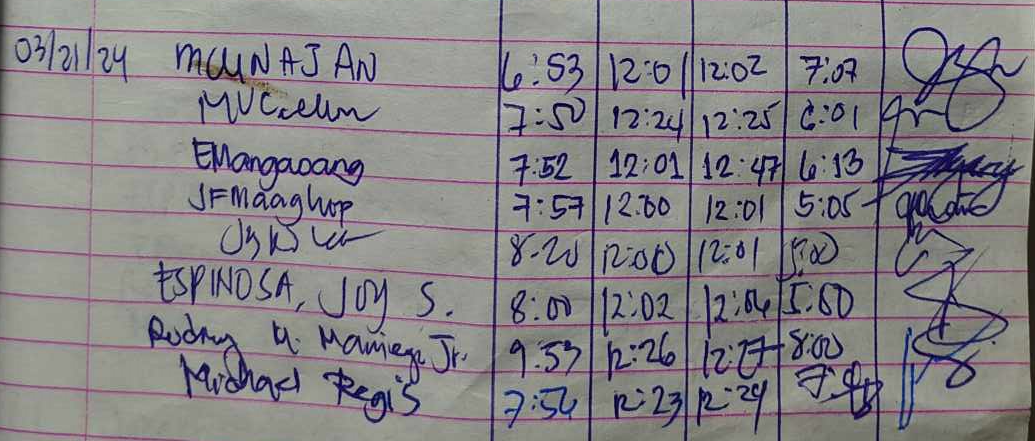 03/21/24 MCUNAJAN 6:53 12:01 12:02 7:07
7:50 12:24 12:25 6:01
EMangaoang 7:52 12:01 12:47 6:13
JFMaaghop 7:57 12:00 12:01 5:05
8:20 12:00 12:01 5:00
ESPINOSA, JOY S. 8:00 12:02 12:04 5:00
Rodney Jr. 9:53 12:26 12:27 8:00
Michael Regis 7:54 12:23 12:24